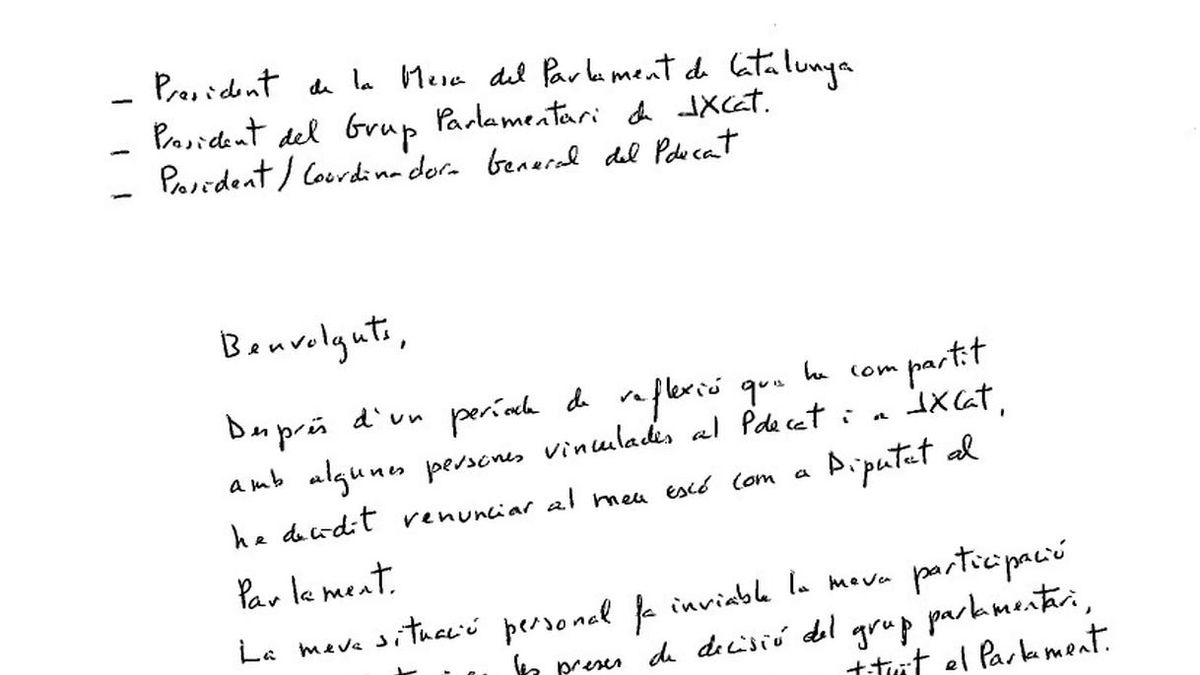 - President de la Mesa del Parlament de Catalunya
- President del Grup Parlamentari de JXCat.
- President/Coordinadora General del Pdecat
Benvolguts,
Després d'un període de reflexió que he compartit
amb algunes persones vinculades al Pdecat i a JXCat,
he decidit renunciar al meu escó com a Diputat al
Parlament.
La meva situació personal fa inviable la meva participació
les preses de decisió del grup parlamentari,
el Parlament.